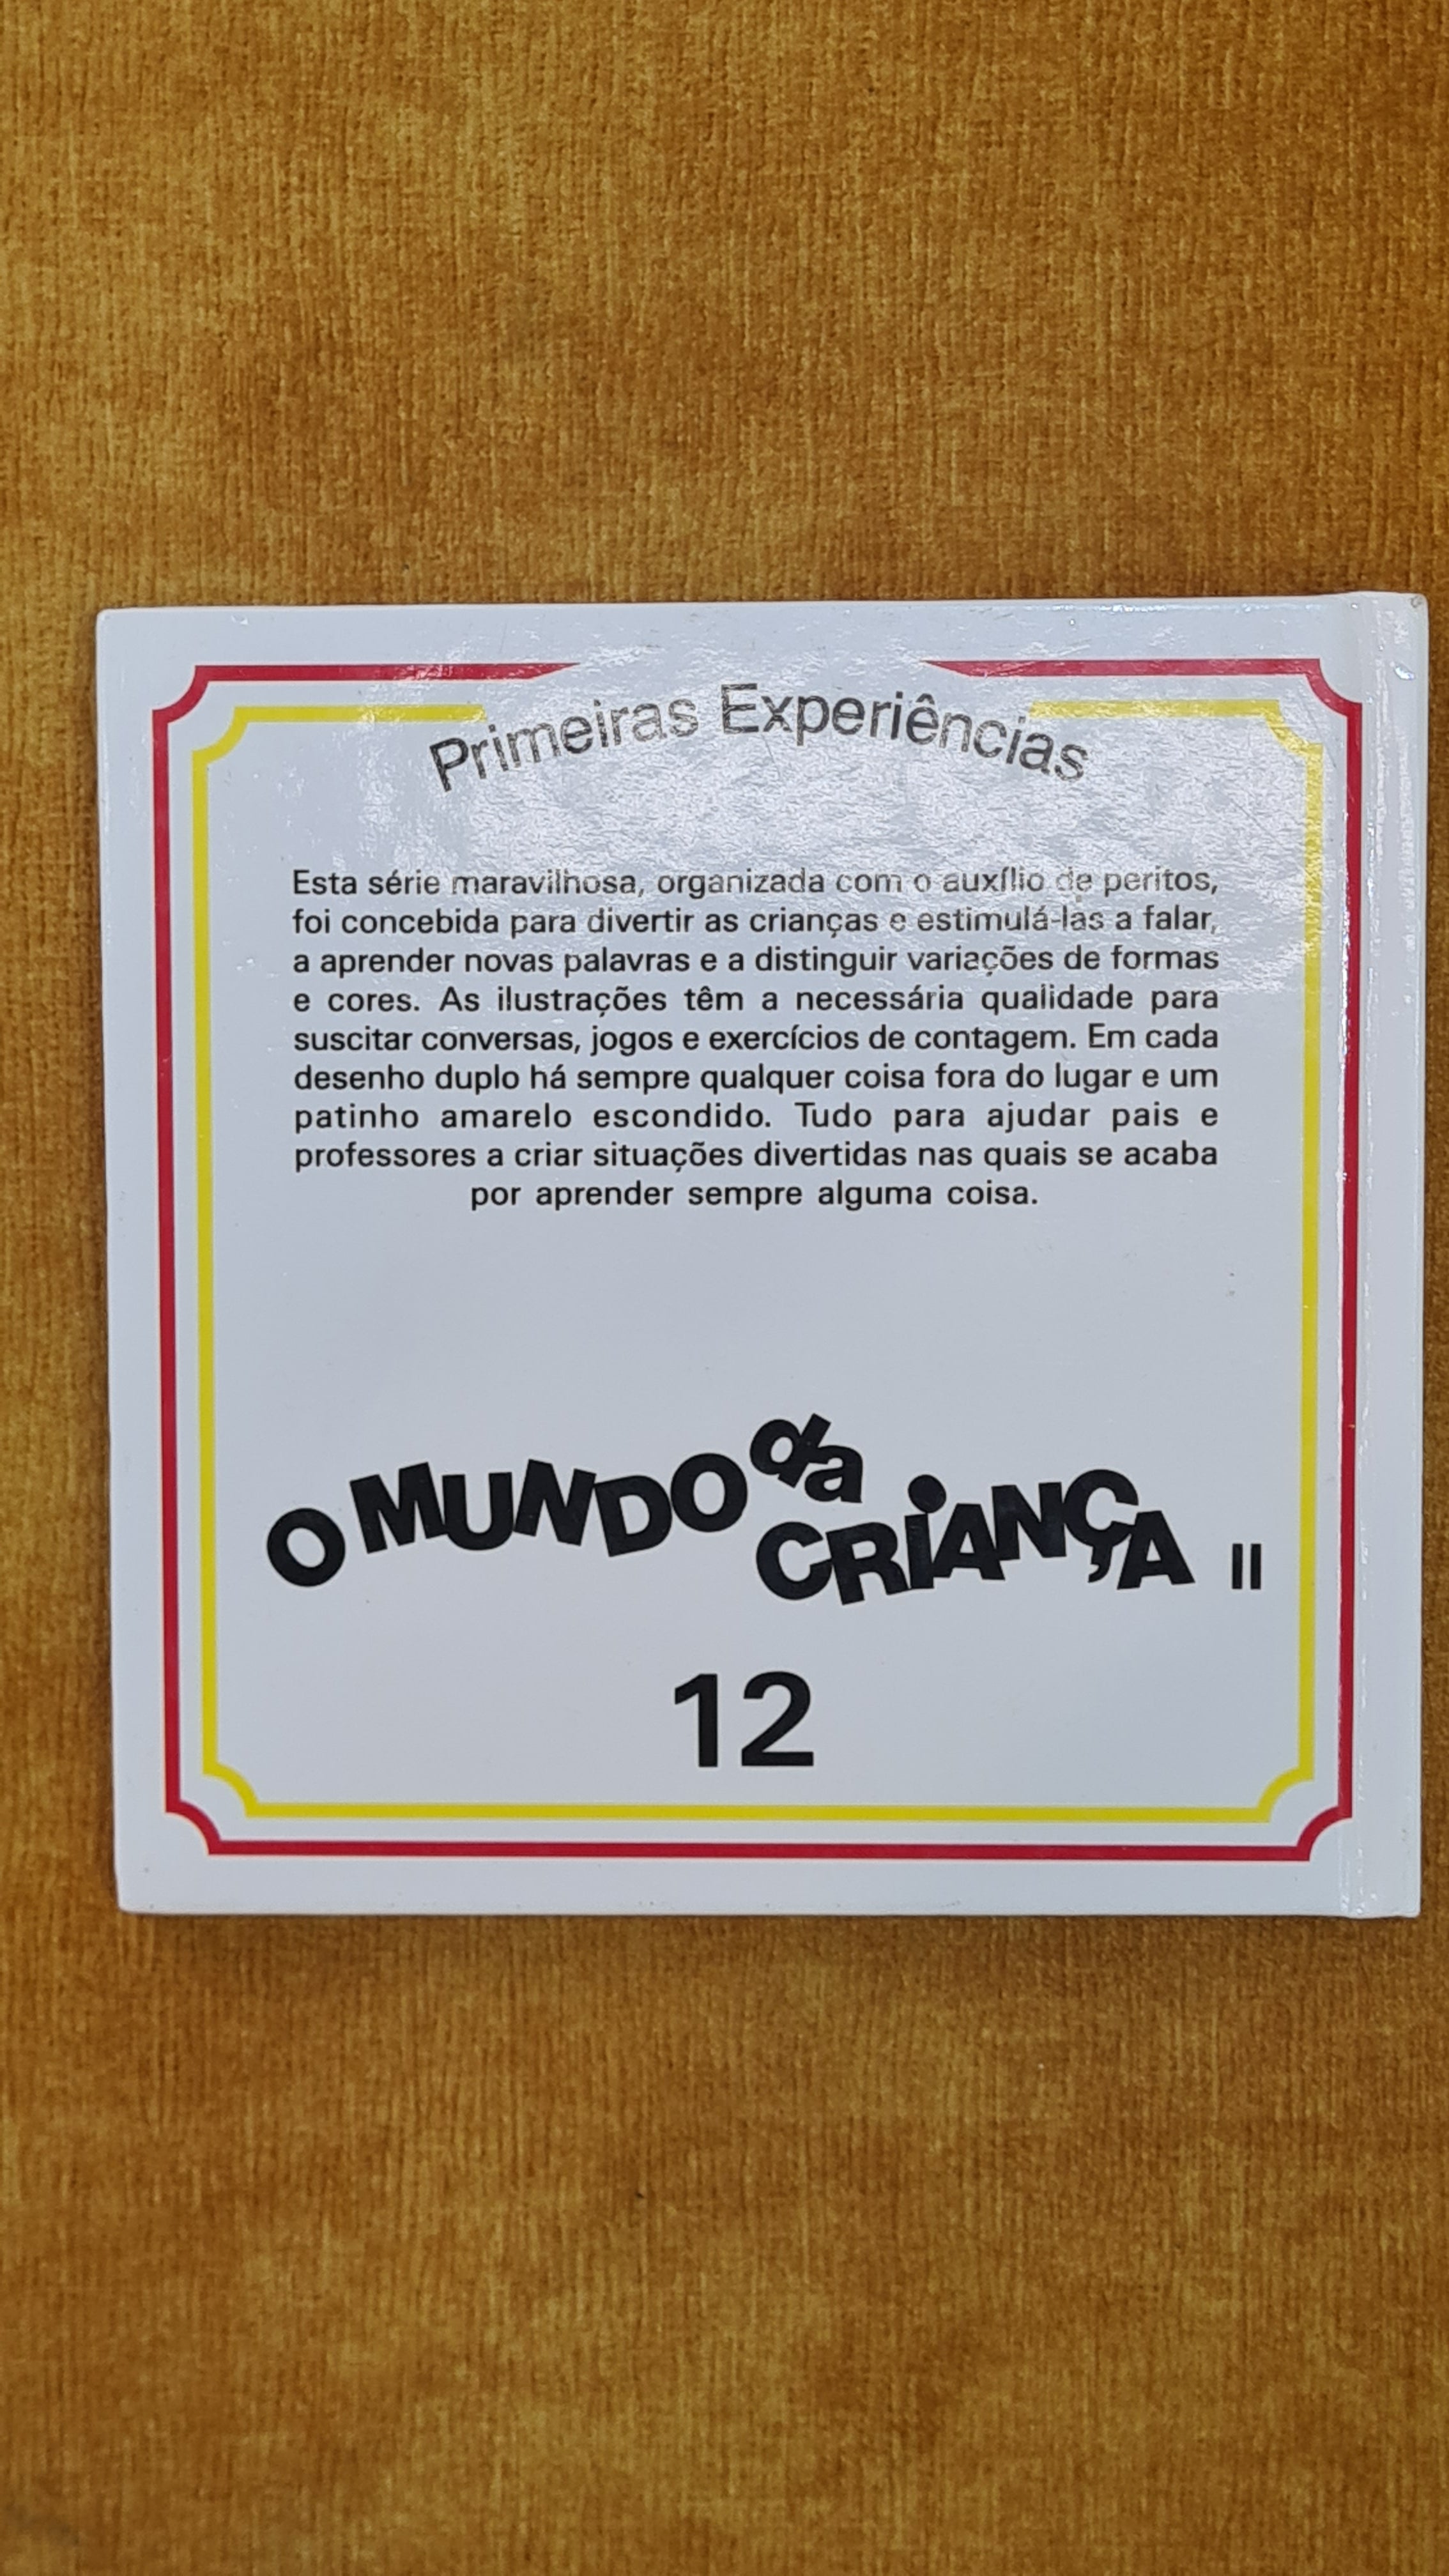 Primeiras Experiências
Esta série maravilhosa, organizada com o auxílio de peritos,
foi concebida para divertir as crianças e estimulá-las a falar,
a aprender novas palavras e a distinguir variações de formas
e cores. As ilustrações têm a necessária qualidade para
suscitar conversas, jogos e exercícios de contagem. Em cada
desenho duplo há sempre qualquer coisa fora do lugar e um
patinho amarelo escondido. Tudo para ajudar pais e
professores a criar situações divertidas nas quais se acaba
por aprender sempre alguma coisa.
O MUNDO da
CRiANÇA II
12